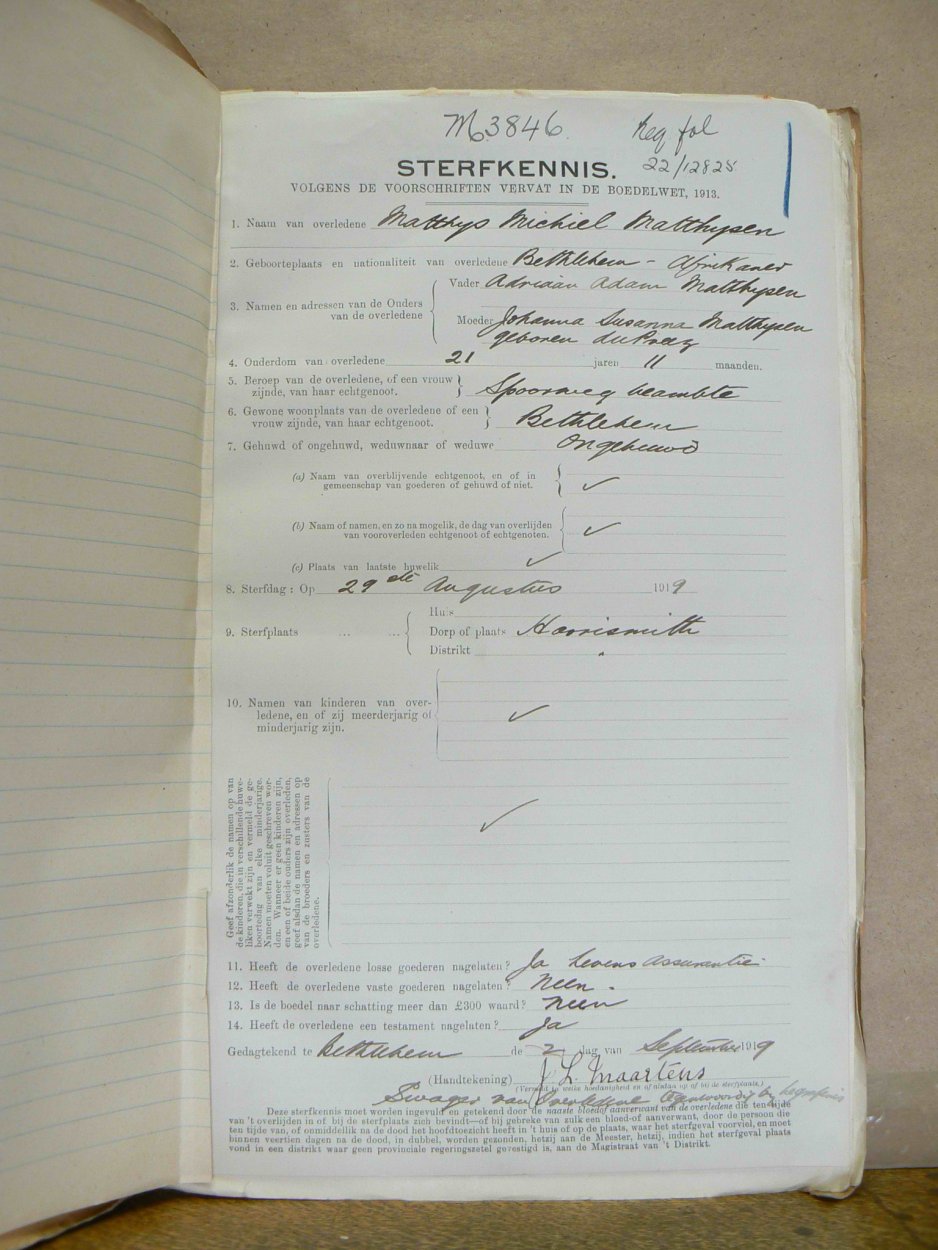 M3846.
Reg fol
22/12825
STERFKENNIS.
VOLGENS DE VOORSCHRIFTEN VERVAT IN DE BOEDELWET, 1913.
1. Naam van overledene Matthys Michiel Matthysen
2. Geboorteplaats en nationaliteit van overledene Bethlehem - Afrikaner
3. Namen en adressen van de Ouders van de overledene
Vader Adriaan Adam Matthysen
Moeder Johanna Susanna Matthysen
geboren du Preez
4. Ouderdom van overledene 21 jaren 11 maanden.
5. Beroep van de overledene, of een vrouw
zijnde, van haar echtgenoot. Spoorweg beambte
6. Gewone woonplaats van de overledene of een
vrouw zijnde, van haar echtgenoot. Bethlehem
7. Gehuwd of ongehuwd, weduwnaar of weduwe Ongehuwd
(a) Naam van overblijvende echtgenoot, en of in
gemeenschap van goederen of gehuwd of niet. ✓
(b) Naam of namen, en zo na mogelik, de dag van overlijden
van vooroverleden echtgenoot of echtgenoten. ✓
(c) Plaats van laatste huwelik ✓
8. Sterfdag : Op 29 ste Augustus 1919
9. Sterfplaats ... ...
Huis
Dorp of plaats Harrismith
Distrikt "
10. Namen van kinderen van over-
ledene, en of zij meerderjarig of
minderjarig zijn. ✓
Geef afzonderlik de namen op van
de kinderen, die in verschillende huwe-
liken verwekt zijn en vermeld de ge-
boortedag van elke minderjarige.
Namen moeten voluit geschreven wor-
den. Wanneer er geen kinderen zijn,
en een of beide ouders zijn overleden,
geef alsdan de namen en adressen op
van de broeders en zusters van de
overledene.
✓
11. Heeft de overledene losse goederen nagelaten? Ja Levens Assurantie
12. Heeft de overledene vaste goederen nagelaten? Neen.
13. Is de boedel naar schatting meer dan £300 waard? Neen
14. Heeft de overledene een testament nagelaten? Ja
Gedagtekend te Bethlehem de 2 dag van September 1919
(Handtekening) J. L. Maartens
(Vermeld in welke hoedanigheid en of alsdan op of bij de sterfplaats.)
Swager van Overledene Tegenwoordig by begrafenis
Deze sterfkennis moet worden ingevuld en getekend door de naaste bloed of aanverwant van de overledene die ten tijde
van 't overlijden in of bij de sterfplaats zich bevindt—of bij gebreke van zulk een bloed-of aanverwant, door de persoon die
ten tijde van, of onmiddellik na de dood het hoofdtoezicht heeft in 't huis of op de plaats, waar het sterfgeval voorviel, en moet
binnen veertien dagen na de dood, in dubbel, worden gezonden, hetzij aan de Meester, hetzij, indien het sterfgeval plaats
vond in een distrikt waar geen provinciale regeringszetel gevestigd is, aan de Magistraat van 't Distrikt.